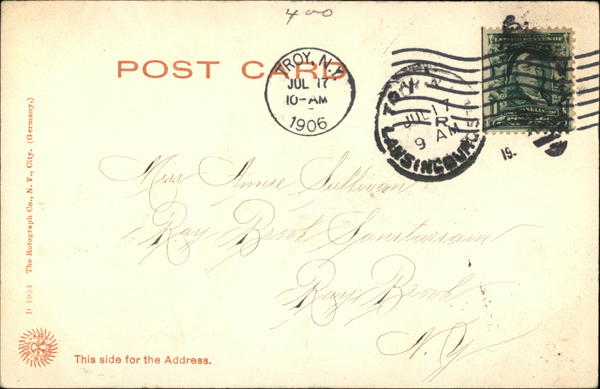 400
POST CARD
TROY, N.Y.
JUL 17
10-AM
1906
TROY
JUL 17
R
9 AM
LANSINGBURG STA
FRANKLIN
19.
Miss Annie Sullivan
Ray Brook Sanitarium
Ray Brook
N. Y.
D 1954 The Rotograph Co., N. Y., City. (Germany.)
This side for the Address.